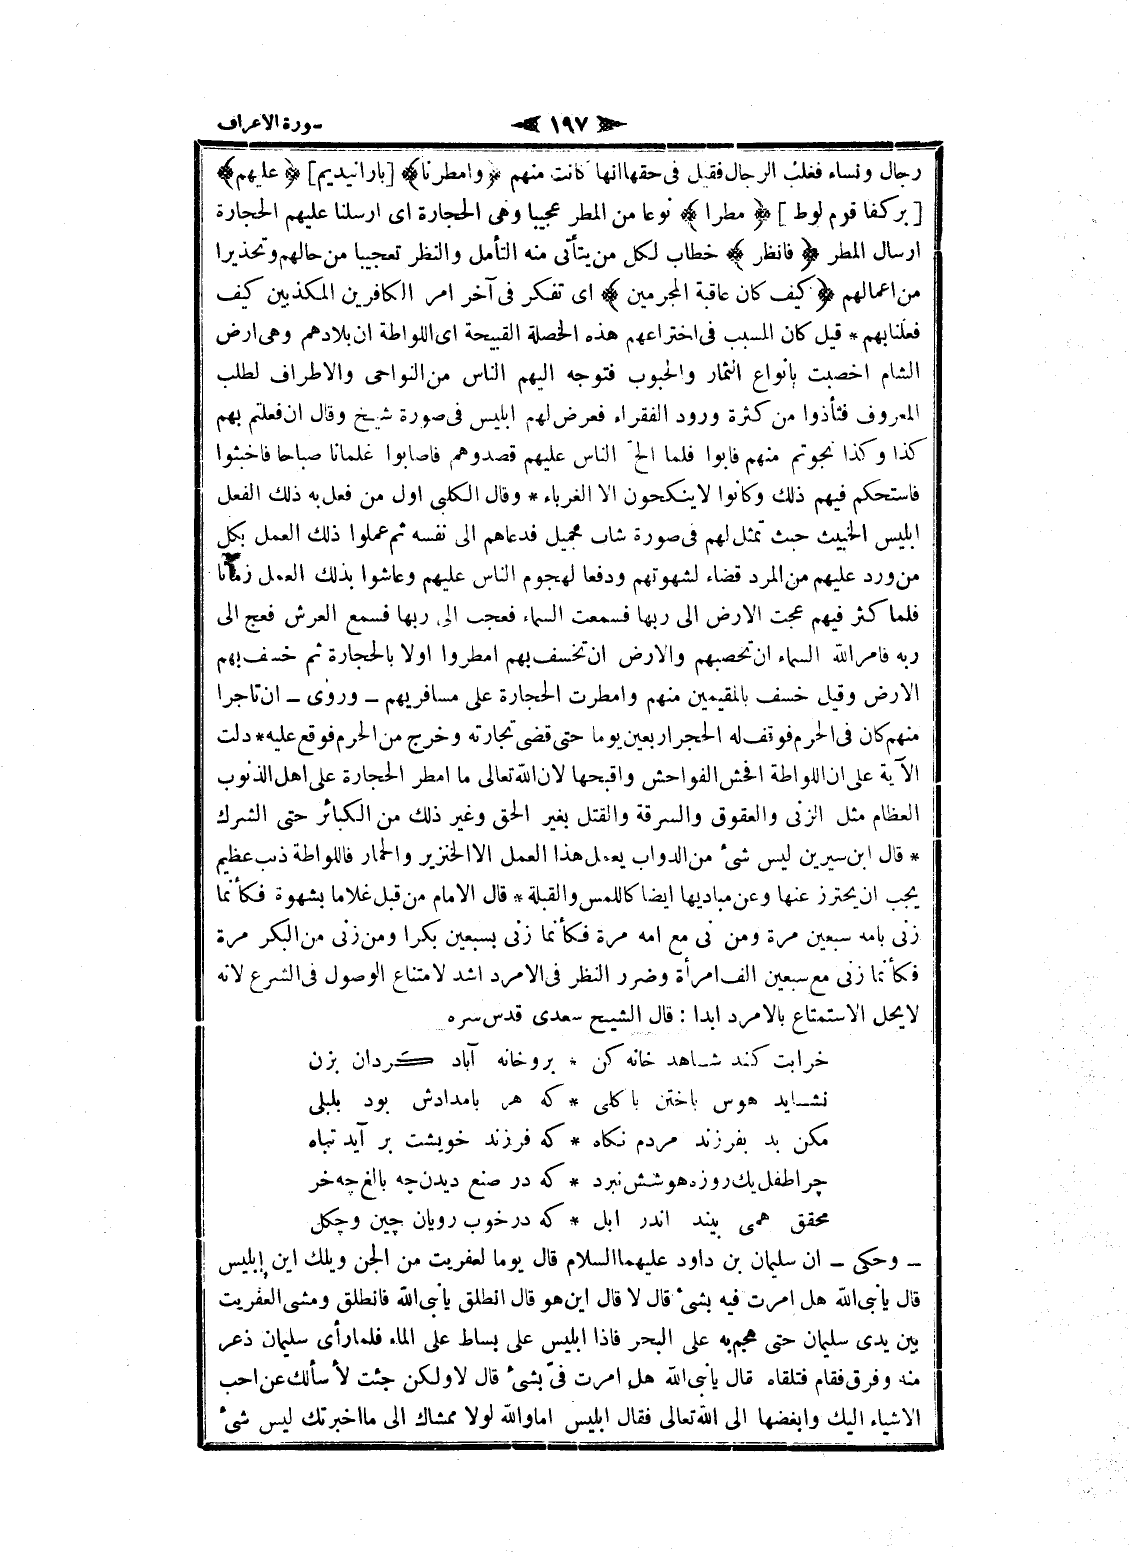 سورة الاعراف ١٩٧
رجال ونساء فغلب الرجال فقيل فى حقها انها كانت منهم ﴿ وامطرنا﴾ [بارانيديم] ﴿ عليهم﴾
[ بركفا قوم لوط ] ﴿ مطرا ﴾ نوعا من المطر عجيبا وهى الحجارة اى ارسلنا عليهم الحجارة
ارسال المطر ﴿ فانظر ﴾ خطاب لكل من يتأتى منه التأمل والنظر تعجيبا من حالهم وتحذيرا
من اعمالهم ﴿ كيف كان عاقبة المجرمين ﴾ اى تفكر فى آخر امر الكافرين المكذبين كيف
فعلنا بهم * قيل كان السبب فى اختراعهم هذه الخصلة القبيحة اى اللواطة ان بلادهم وهى ارض
الشام اخصبت بأنواع الثمار والحبوب فتوجه اليهم الناس من النواحى والاطراف لطلب
المعروف فتأذوا من كثرة ورود الفقراء فعرض لهم ابليس فى صورة شيخ وقال ان فعلتم بهم
كذا وكذا نجوتم منهم فابوا فلما الح الناس عليهم قصدوهم فاصابوا غلمانا صباحا فاخبثوا
فاستحكم فيهم ذلك وكانوا لاينكحون الا الغرباء * وقال الكلبى اول من فعل به ذلك الفعل
ابليس الخبيث حيث تمثل لهم فى صورة شاب جميل فدعاهم الى نفسه ثم عملوا ذلك العمل بكل
من ورد عليهم من المرد قضاء لشهوتهم ودفعا لهجوم الناس عليهم وعاشوا بذلك العمل زمانا
فلما كثر فيهم عجت الارض الى ربها فسمعت السماء فعجت الى ربها فسمع العرش فعج الى
ربه فامر الله السماء ان تحصبهم والارض ان تخسف بهم امطروا اولا بالحجارة ثم خسف بهم
الارض وقيل خسف بالمقيمين منهم وامطرت الحجارة على مسافريهم ـ وروى ـ ان تاجرا
منهم كان فى الحرم فوقف له الحجر اربعين يوما حتى قضى تجارته وخرج من الحرم فوقع عليه * دلت
الآية على ان اللواطة افحش الفواحش واقبحها لان الله تعالى ما امطر الحجارة على اهل الذنوب
العظام مثل الزنى والعقوق والسرقة والقتل بغير الحق وغير ذلك من الكبائر حتى الشرك
* قال ابن سيرين ليس شئ من الدواب يعمل هذا العمل الا الخنزير والحمار فاللواطة ذنب عظيم
يجب ان يحترز عنها وعن مباديها ايضا كاللمس والقبلة * قال الامام من قبل غلاما بشهوة فكأنما
زنى بامه سبعين مرة ومن نى مع امه مرة فكأنما زنى بسبعين بكرا ومن زنى من البكر مرة
فكأنما زنى مع سبعين الف امرأة وضرر النظر فى الامرد اشد لامتناع الوصول فى الشرع لانه
لايحل الاستمتاع بالامرد ابدا : قال الشيخ سعدى قدس سره
خرابت كند شاهد خانه كن * بروخانه آباد كردان بزن
نشايد هوس باختن با كلى * كه هر بامدادش بود بلبلى
مكن بد بفرزند مردم نكاه * كه فرزند خويشت بر آيد تباه
چرا طفل يك روزه هوشش نبرد * كه در صنع ديدن چه بالغ چه خر
محقق همى بيند اندر ابل * كه در خوب رويان چين وچكل
ـ وحكى ـ ان سليمان بن داود عليهما السلام قال يوما لعفريت من الجن ويلك اين ابليس
قال يا نبى الله هل امرت فيه بشئ قال لا قال اين هو قال انطلق يا نبى الله فانطلق ومشى العفريت
بين يدى سليمان حتى هجم به على البحر فاذا ابليس على بساط على الماء فلما رأى سليمان ذعر
منه وفرق فقام فتلقاه قال يا نبى الله هل امرت فىّ بشئ قال لا ولكن جئت لأسألك عن احب
الاشياء اليك وابغضها الى الله تعالى فقال ابليس اما والله لولا ممشاك الى ما اخبرتك ليس شئ